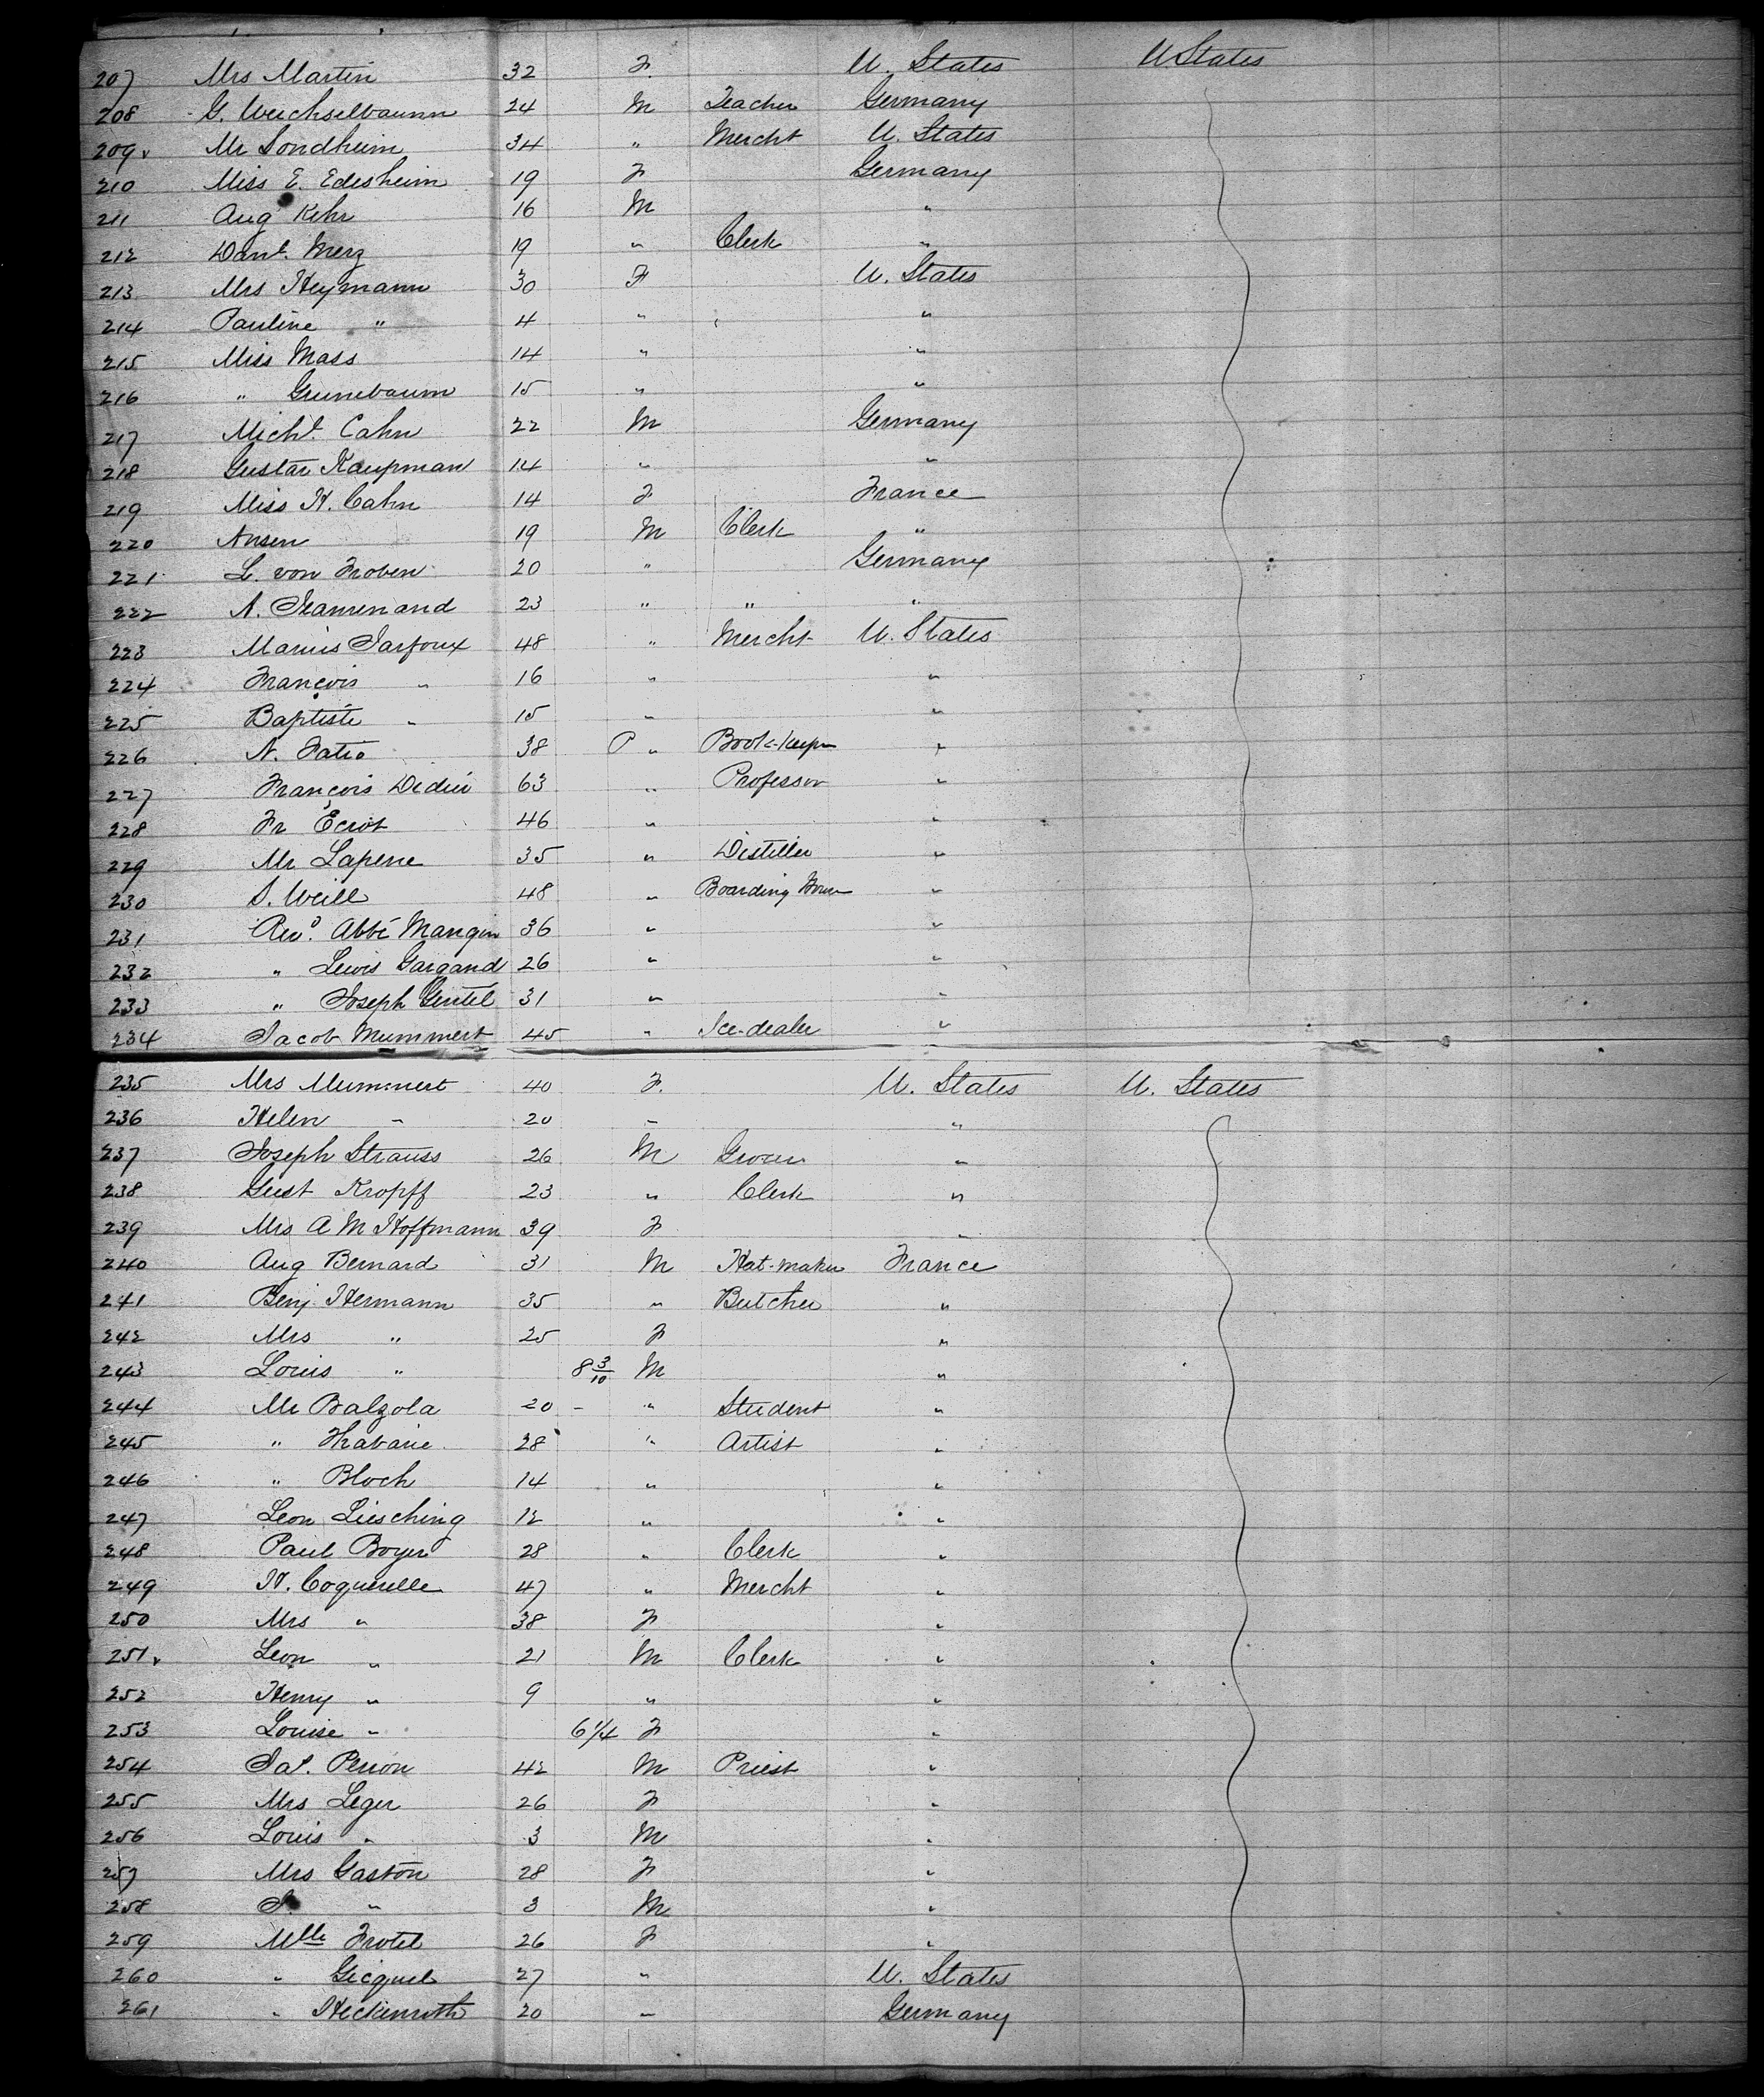 207 Mrs Martin 32 F. U. States U States
208 G. Weichselbaum 24 M Teacher Germany
209 Mr Sondheim 34 " Mercht U. States
210 Miss E. Edesheim 19 F Germany
211 Aug Kehr 16 M "
212 Danl. Merz 19 " Clerk "
213 Mrs Heymann 30 F U. States
214 Pauline " 4 " "
215 Miss Mass 14 " "
216 " Grunebaum 15 " "
217 Michl. Cahn 22 M Germany
218 Gustav Kaupman 14 " "
219 Miss H. Cahn 14 F France
220 Ansen 19 M Clerk "
221 L. von Froben 20 " Germany
222 A. 23 " " "
223 Marius Sarfoux 48 " Mercht U. States
224 François " 16 " "
225 Baptiste " 15 " "
226 N. Fatio 38 P " Book-keeper "
227 François Dedieu 63 " Professor "
228 Fr Ecrot 46 " "
229 Mr Lapene 35 " Distiller "
230 S. Weill 48 " Boarding House "
231 Revd. Abbé Mangin 36 " "
232 " Lewis Gargand 26 " "
233 " Joseph Gentel 31 " "
234 Jacob Mummert 45 " Ice-dealer "
235 Mrs Mummert 40 F. U. States U. States
236 Helen " 20 " "
237 Joseph Strauss 26 M Grocer "
238 Gust Kropff 23 " Clerk "
239 Mrs A M Hoffmann 39 F "
240 Aug Bernard 31 M Hat-maker France
241 Benj. Hermann 35 " Butcher "
242 Mrs " 25 F "
243 Louis " 8 3/10 M "
244 Mr Balzola 20 - " Student "
245 " 28 " Artist "
246 " Bloch 14 " "
247 Leon Liesching 12 " "
248 Paul Boyer 28 " Clerk "
249 H. Coquerelle 47 " Mercht "
250 Mrs " 38 F "
251 Leon " 21 M Clerk "
252 Henry " 9 " "
253 Louise " 6 1/4 F "
254 Perron 42 M Priest "
255 Mrs Leger 26 F "
256 Louis " 3 M "
257 Mrs Gaston 28 F "
258 " 3 M "
259 Mlle Frotel 26 F "
260 " Gicquel 27 " U. States
261 " Heckenroth 20 " Germany